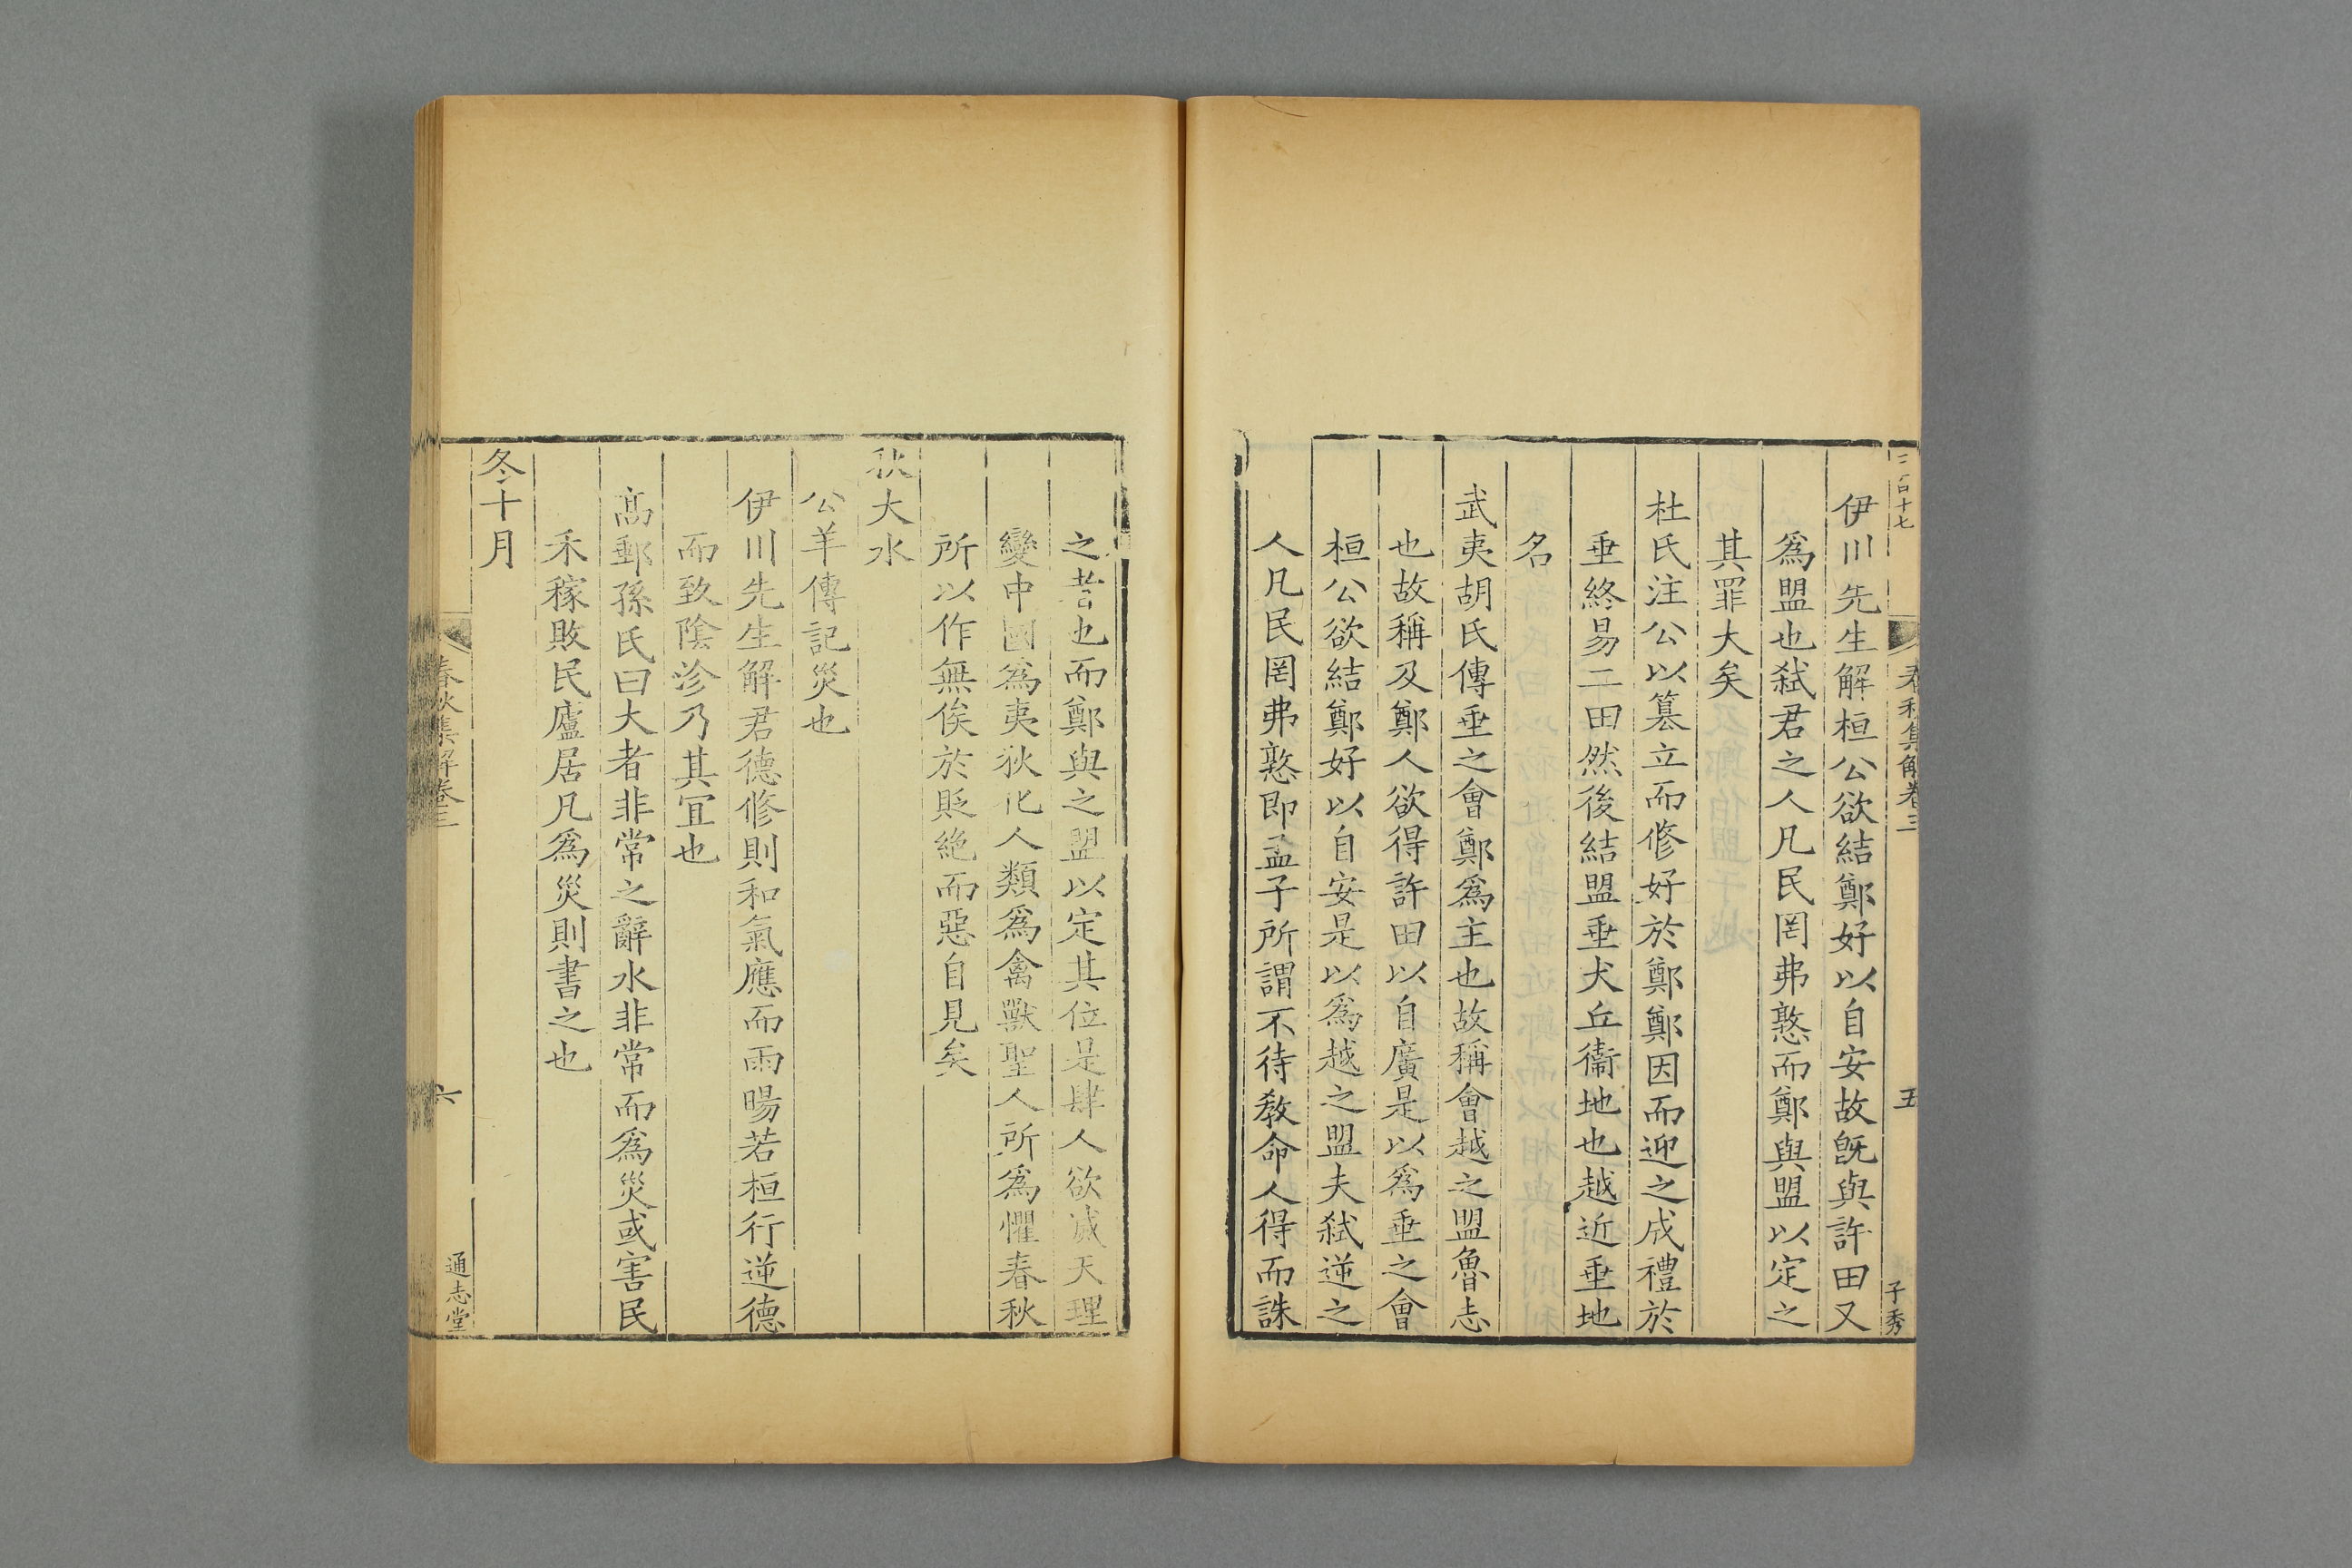 三百十七 春秋集解卷三 五 子秀
伊川先生解桓公欲結鄭好以自安故旣與許田又
爲盟也弑君之人凡民罔弗憝而鄭與盟以定之
其罪大矣
杜氏注公以簒立而修好於鄭鄭因而迎之成禮於
垂終易二田然後結盟垂犬丘衞地也越近垂地
名
武夷胡氏傳垂之會鄭爲主也故稱會越之盟魯志
也故稱及鄭人欲得許田以自廣是以爲垂之會
桓公欲結鄭好以自安是以爲越之盟夫弑逆之
人凡民罔弗憝即孟子所謂不待敎命人得而誅
之者也而鄭與之盟以定其位是肆人欲滅天理
變中國爲夷狄化人類爲禽獸聖人所爲懼春秋
所以作無俟於貶絶而惡自見矣
秋大水
公羊傳記災也
伊川先生解君德修則和氣應而雨暘若桓行逆德
而致陰沴乃其宜也
髙郵孫氏曰大者非常之辭水非常而爲災或害民
禾稼敗民廬居凡爲災則書之也
冬十月
春秋集解卷三 六 通志堂